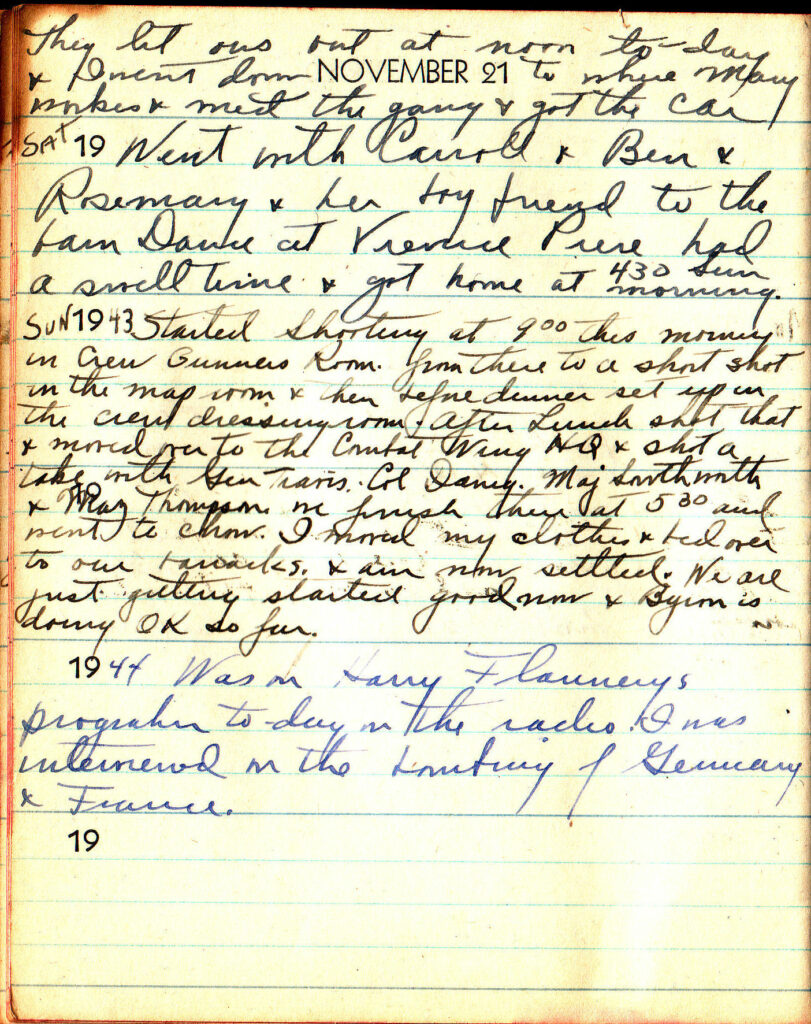 They let ous out at noon to-day
& I went down NOVEMBER 21 to where Mary
workes & meet the gang & got the car
SAT 19 Went with Carroll & Ben &
Rosemary & her boy friend to the
barn Dance at had
a swell time & got home at 430 Sun
morning.
SUN 1943 Started Shooting at 900 this morning
in Crew Gunners Room. from there to a short shot
in the map room & then before dinner set up in
the crew dressing room. After Lunch shot that
& moved over to the Combat Wing HQ & shot a
take with Gen Travis. Col Maj Southworth
19
& Thompson we finish there at 530 and
went to chow. I moved my clothes & bed over
to our barracks. & am now settled. We are
just getting started good now & Byron is
doing OK so far.
1944 Was on Harry Flannerys
program to-day on the radio. I was
interviewed on the bombing of Germany
& France.
19